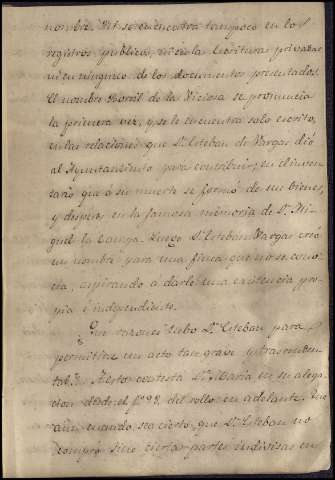 nombre. Ni se encuentra tampoco en los
registros publicos, ni en la Escritura privada
ni en ninguno de los documentos presentados.
El nombre Borril de la Viciosa se pronuncia
la primera vez, y se le encuentra solo escrito,
en las relaciones que Dn. Esteban de Vargas dio
al Ayuntamiento para contribuir, en el inven
tario que a su muerte se formó de sus bienes,
y despues, en la famosa memoria de Dn. Mi-
guel la Campa. Luego Dn. Esteban Vargas creó
un nombre para una finca que no se cono
cia, aspirando a darle una existencia pro
pia é independiente.
¿Que razones hubo Dn. Esteban para
permitirse un acto tan grave y trascenden
tal? A esto contestá Da. Maria en su alega
cion desde el fo. 98. del rollo en adelante. Que
aun cuando sea cierto, que Dn. Esteban no
compró sino ciertas partes indivisas en